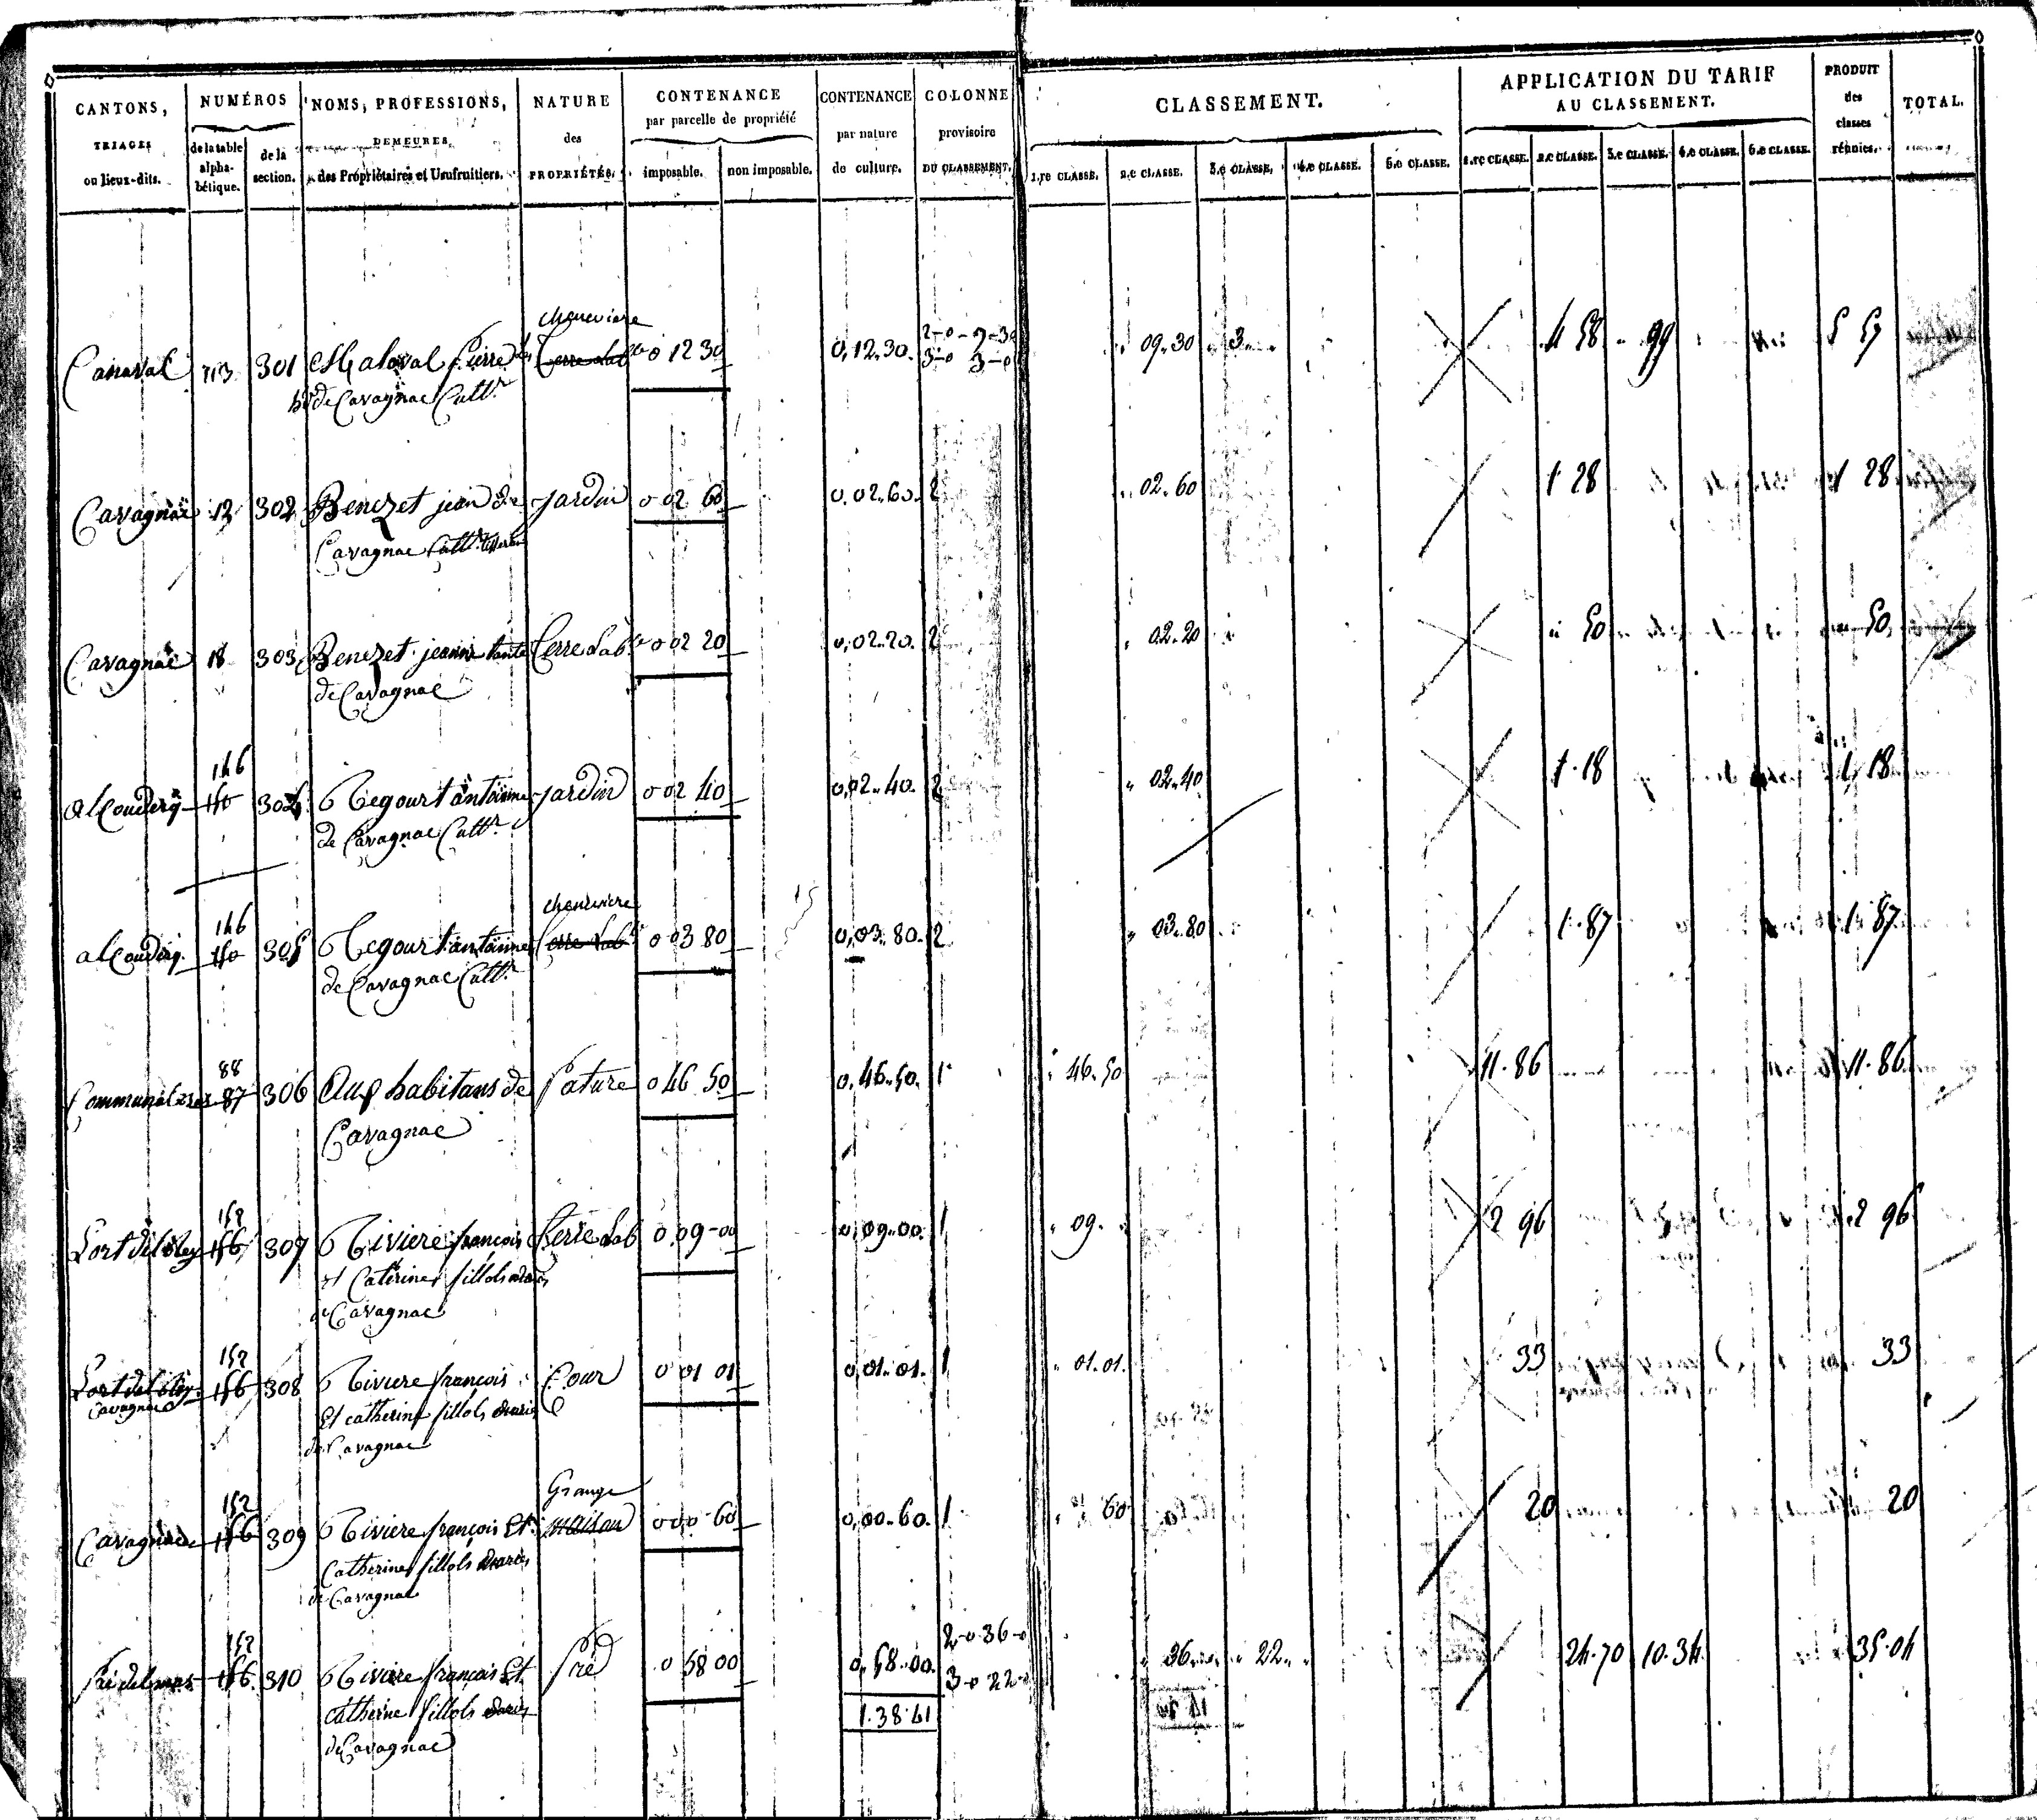 CANTONS, TRIAGES ou lieux-dits.
NUMÉROS
de la table alphabétique.
de la section.
NOMS, PROFESSIONS, DEMEURES, des Propriétaires et Usufruitiers.
NATURE des PROPRIÉTÉS.
CONTENANCE par parcelle de propriété
imposable.
non imposable.
CONTENANCE par nature de culture.
COLONNE provisoire DU CLASSEMENT.
CLASSEMENT.
1.re CLASSE. 2.e CLASSE. 3.e CLASSE. 4.e CLASSE. 5.e CLASSE.
APPLICATION DU TARIF AU CLASSEMENT.
1.re CLASSE. 2.e CLASSE. 3.e CLASSE. 4.e CLASSE. 5.e CLASSE.
PRODUIT des classes réunies.
TOTAL.
cheneviere
113 301 Malaval Pierre 0 12 30 0,12.30. 2-0-9-30 09.30 3 4 58 99 5 57
3-0 3-0
de Cavagnac Cultr
Cavagnac 12 302 Benezet jean de jardin 0 02 60 0,02.60. 2 02.60 1 28 1 28
Cavagnac Cultr
Cavagnac 18 303 Benezet jeanne tante Terre Lable 0 02 20 0,02.20. 2 02.20 50 50
de Cavagnac
146
al Couderq 140 304 Regourt antoinne jardin 0 02 40 0,02.40. 2 02.40 1.18 1.18
de Cavagnac Cultr
146 cheneviere
al Couderq 140 305 Regourt antoinne Terre Lable 0 03 80 0,03.80. 2 03.80 1.87 1.87
de Cavagnac Cultr
88
Communal 87 306 Aux habitans de Pature 0 46 50 0,46.50. 1 46.50 11.86 11.86
Cavagnac
152
156 307 Riviere françois Terre Lab 0 09-00 0,09.00. 1 09. 2 96 2 96
et Caterine fillols mariés
de Cavagnac
152
156 308 Riviere françois Cour 0 01 01 0,01.01. 1 01.01. 33 33
Cavagnac Et catherine fillols mariés
de Cavagnac
152 Grange
Cavagnac 156 309 Riviere françois Et maison 0 00 60 0,00.60. 1 60 20 20
Catherine fillols mariés
de Cavagnac
152 2-0-36-0
Pré del 156 310 Riviere françois Et Pré 0 58 00 0,58.00. 36 22 24.70 10.34 35.04
3-0 22-0
catherine fillols mariés 1.38.41
de Cavagnac